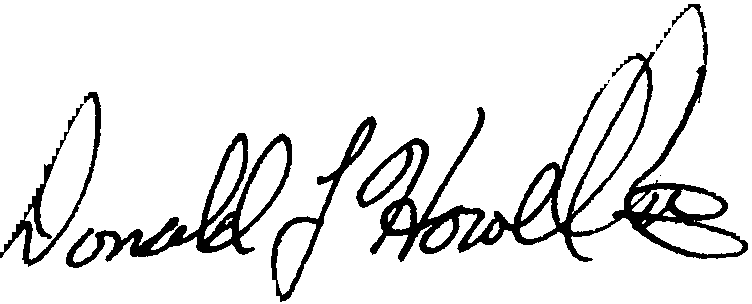 Donald L Howell